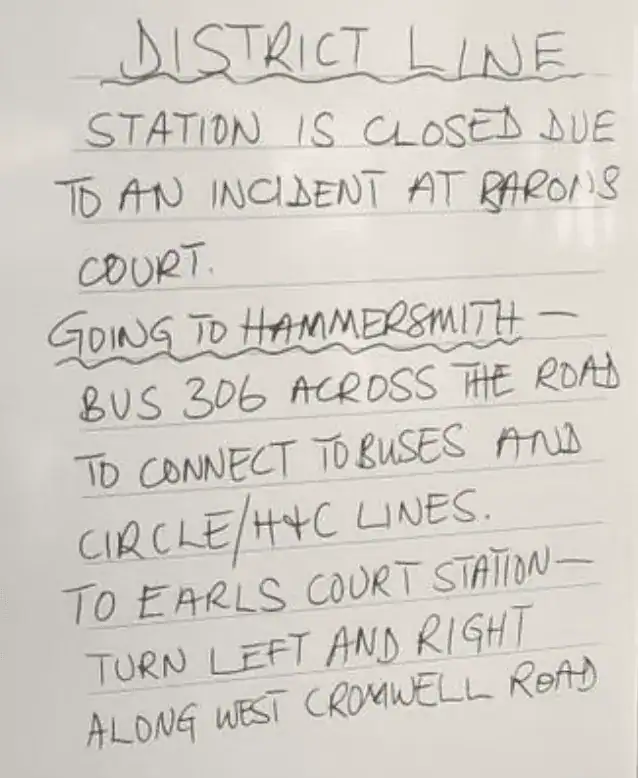 DISTRICT LINE
STATION IS CLOSED DUE
TO AN INCIDENT AT BARONS
COURT.
GOING TO HAMMERSMITH —
BUS 306 ACROSS THE ROAD
TO CONNECT TO BUSES AND
CIRCLE/H&C LINES.
TO EARLS COURT STATION —
TURN LEFT AND RIGHT
ALONG WEST CROMWELL ROAD